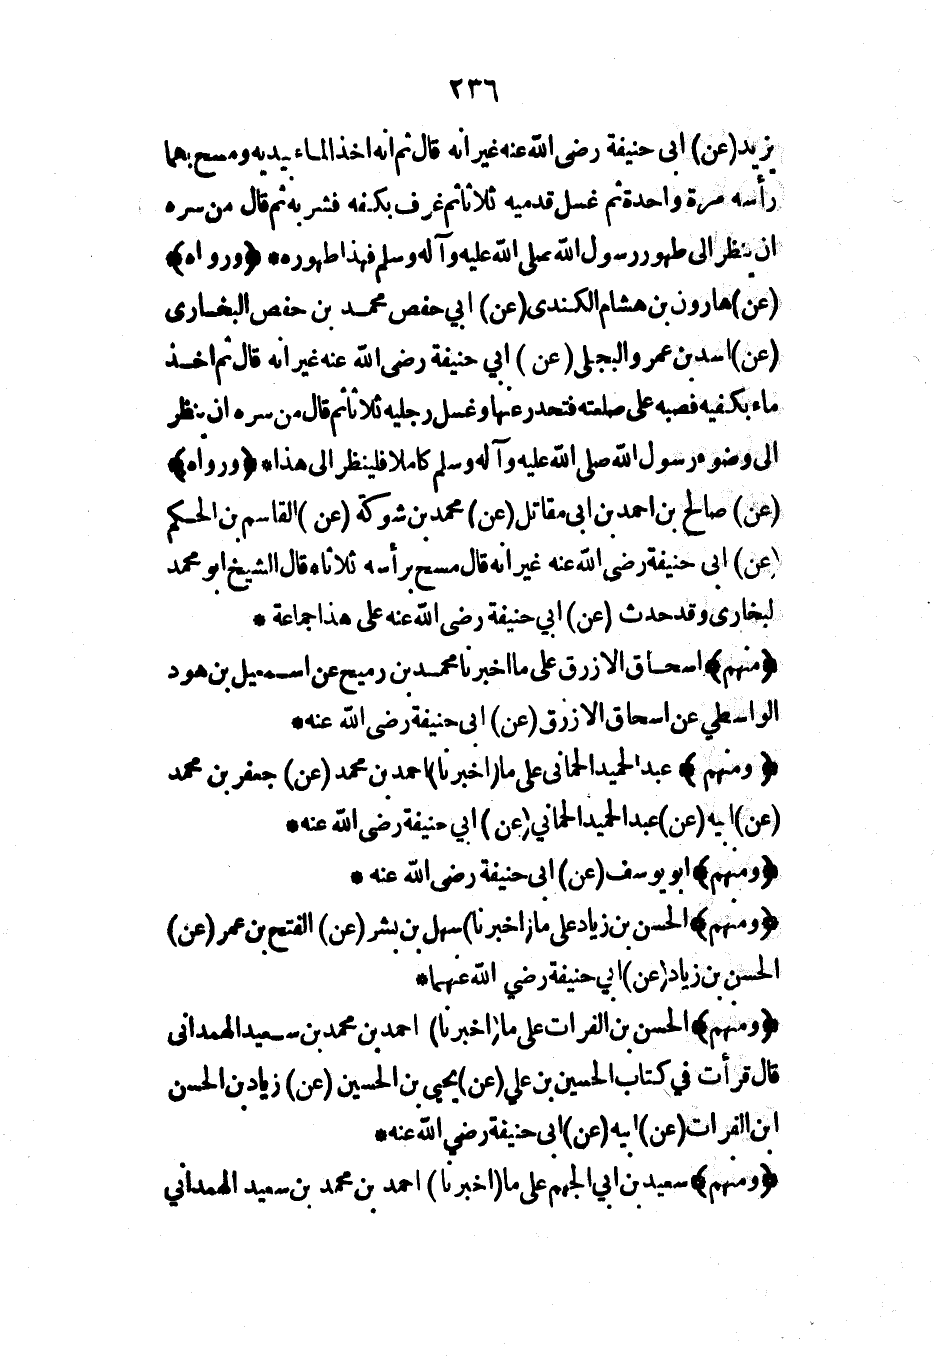 ٢٣٦
يزيد (عن) ابى حنيفة رضى الله عنه غير انه قال ثم انه اخذ الماء بيديه ومسح بهما
رأسه مرة واحدة ثم غسل قدميه ثلاثا ثم غرف بكفه فشربه ثم قال من سره
ان ينظر الى طهور رسول الله صلى الله عليه وآله وسلم فهذا طهوره * ﴿ورواه﴾
(عن) هارون بن هشام الكندى (عن) ابي حفص محمد بن حفص البخارى
(عن) اسد بن عمر والبجلى (عن) ابي حنيفة رضى الله عنه غير انه قال ثم اخذ
ماء بكفيه فصبه على صلعته فتحدر عنها وغسل رجليه ثلاثا ثم قال من سره ان ينظر
الى وضوء رسول الله صلى الله عليه وآله وسلم كاملا فلينظر الى هذا * ﴿ورواه﴾
(عن) صالح بن احمد بن ابى مقاتل (عن) محمد بن شوكة (عن) القاسم بن الحكم
(عن) ابى حنيفة رضى الله عنه غير انه قال مسح برأسه ثلاثا ه قال الشيخ ابو محمد
لبخارى وقد حدث (عن) ابي حنيفة رضى الله عنه على هذا جماعة *
﴿منهم﴾ اسحاق الازرق على ما اخبرنا محمد بن رميح عن اسمعيل بن هود
الواسطي عن اسحاق الازرق (عن) ابى حنيفة رضى الله عنه *
﴿ومنهم﴾ عبد الحميد الحمانى على ما (اخبرنا) احمد بن محمد (عن) جعفر بن محمد
(عن) ابيه (عن) عبد الحميد الحماني (عن) ابي حنيفة رضى الله عنه *
﴿ومنهم﴾ ابو يوسف (عن) ابى حنيفة رضى الله عنه *
﴿ومنهم﴾ الحسن بن زياد على ما (اخبرنا) سهل بن بشر (عن) الفتح بن عمر (عن)
الحسن بن زياد (عن) ابي حنيفة رضي الله عنهما *
﴿ومنهم﴾ الحسن بن الفرات على ما (اخبرنا) احمد بن محمد بن سعيد الهمدانى
قال قرأت في كتاب الحسين بن علي (عن) يحيى بن الحسين (عن) زياد بن الحسن
ابن الفرات (عن) ابيه (عن) ابى حنيفة رضي الله عنه *
﴿ومنهم﴾ سعيد بن ابي الجهم على ما (اخبرنا) احمد بن محمد بن سعيد الهمداني